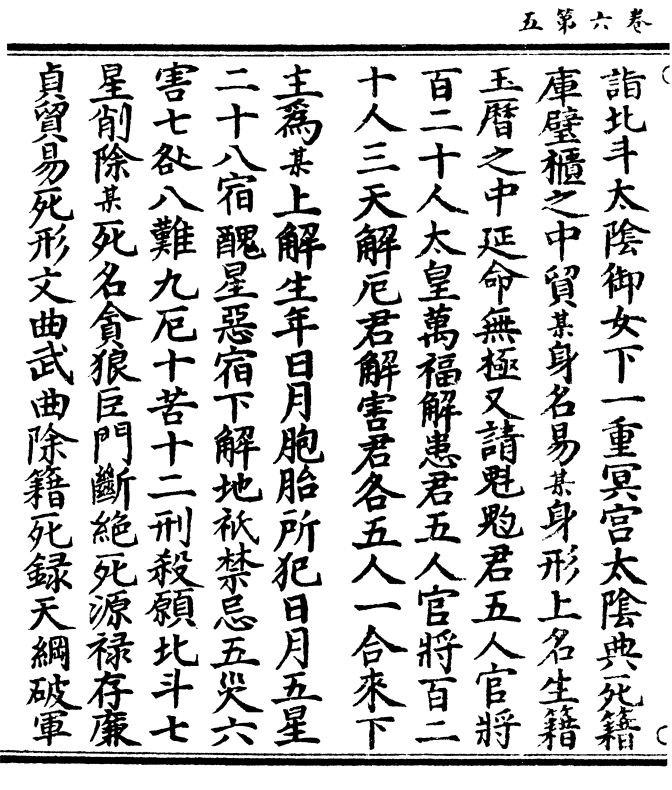 卷六第五
詣北斗太陰御女下一重冥宫太陰典死籍
庫璧櫃之中貿某身名易某身形上名生籍
玉曆之中延命無極又請魁䰢君五人官將
百二十人太皇萬福解患君五人官將百二
十人三天解厄君解害君各五人一合來下
主為某上解生年日月胞胎所犯日月五星
二十八宿醜星惡宿下解地祇禁忌五災六
害七欲八難九厄十苦十二刑殺願北斗七
星削除某死名貪狼巨門斷絶死源禄存廉
貞貿易死形文曲武曲除籍死録天綱破軍